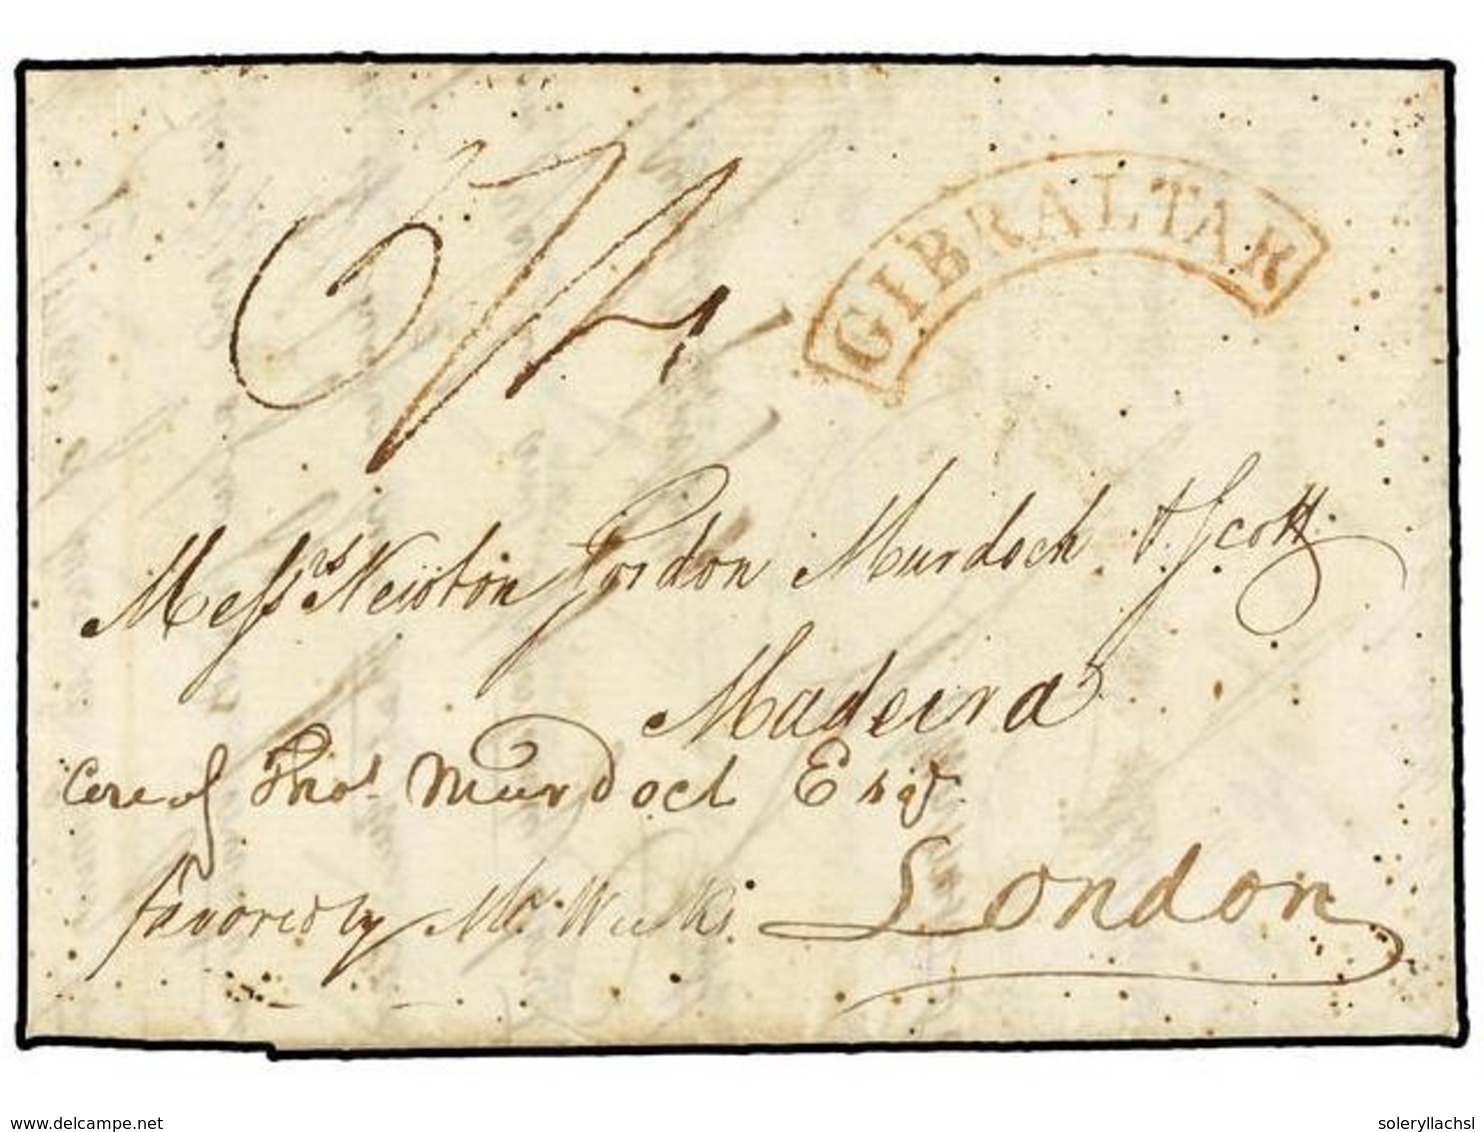 GIBRALTAR
Messrs Newton Gordon Murdoch & Scott.
Madeira
Care of Thos. Murdoch Esqr.
favored by Mr. Weeks.
London
www.delcampe.net
soleryllachsl